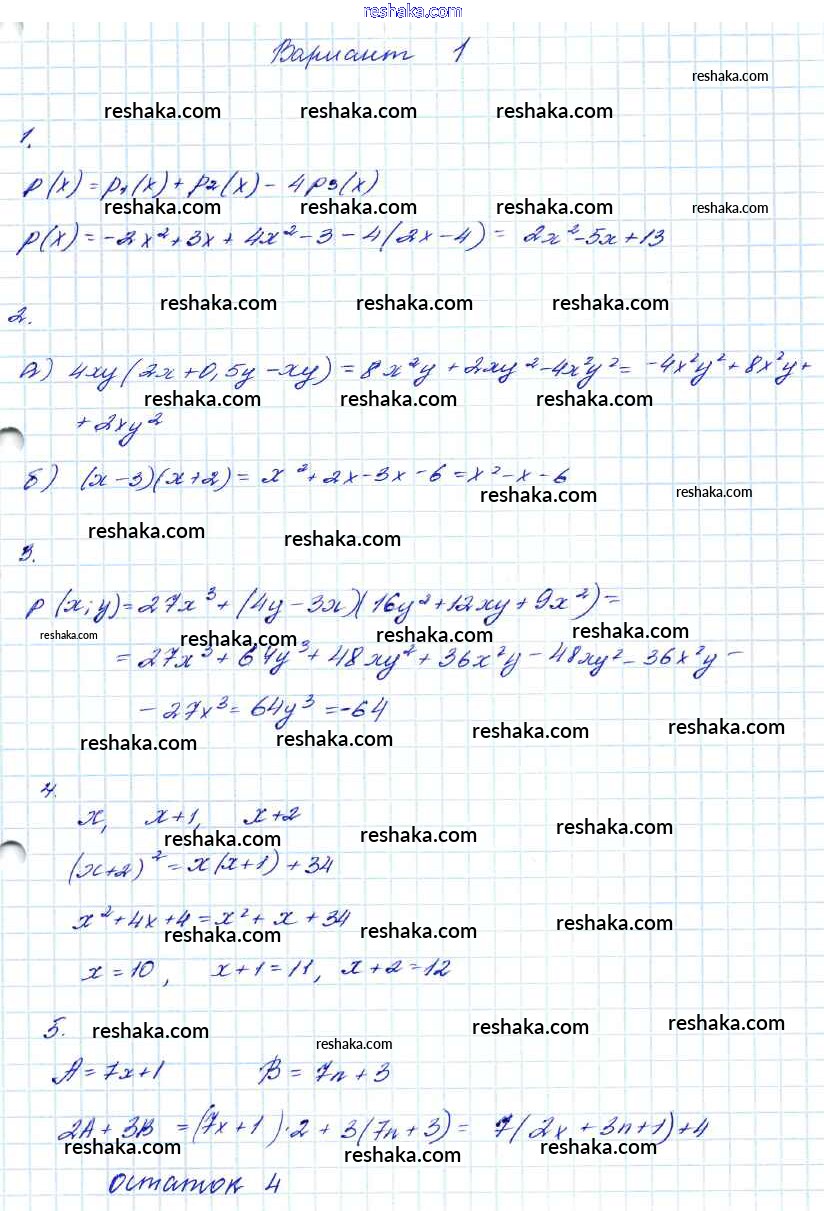 reshaka.com
Вариант 1
reshaka.com
reshaka.com reshaka.com reshaka.com
1.
p(x) = p1(x) + p2(x) - 4p3(x)
reshaka.com reshaka.com reshaka.com reshaka.com
p(x) = -2x² + 3x + 4x² - 3 - 4(2x - 4) = 2x² - 5x + 13
2. reshaka.com reshaka.com reshaka.com
а) 4xy(2x + 0,5y - xy) = 8x²y + 2xy² - 4x²y² = -4x²y² + 8x²y +
reshaka.com reshaka.com reshaka.com
+ 2xy²
б) (x - 3)(x + 2) = x² + 2x - 3x - 6 = x² - x - 6
reshaka.com reshaka.com
reshaka.com reshaka.com
3.
p(x; y) = 27x³ + (4y - 3x)(16y² + 12xy + 9x²) =
reshaka.com reshaka.com reshaka.com reshaka.com
= 27x³ + 64y³ + 48xy² + 36x²y - 48xy² - 36x²y -
- 27x³ = 64y³ = -64
reshaka.com reshaka.com reshaka.com reshaka.com
4.
x, x+1, x+2
reshaka.com reshaka.com reshaka.com
(x+2)² = x(x+1) + 34
x² + 4x + 4 = x² + x + 34
reshaka.com reshaka.com reshaka.com
x = 10, x+1 = 11, x+2 = 12
5. reshaka.com reshaka.com reshaka.com reshaka.com
A = 7x+1 B = 7n + 3
2A + 3B = (7x + 1)·2 + 3(7n + 3) = 7(2x + 3n + 1) + 4
reshaka.com reshaka.com reshaka.com
остаток 4